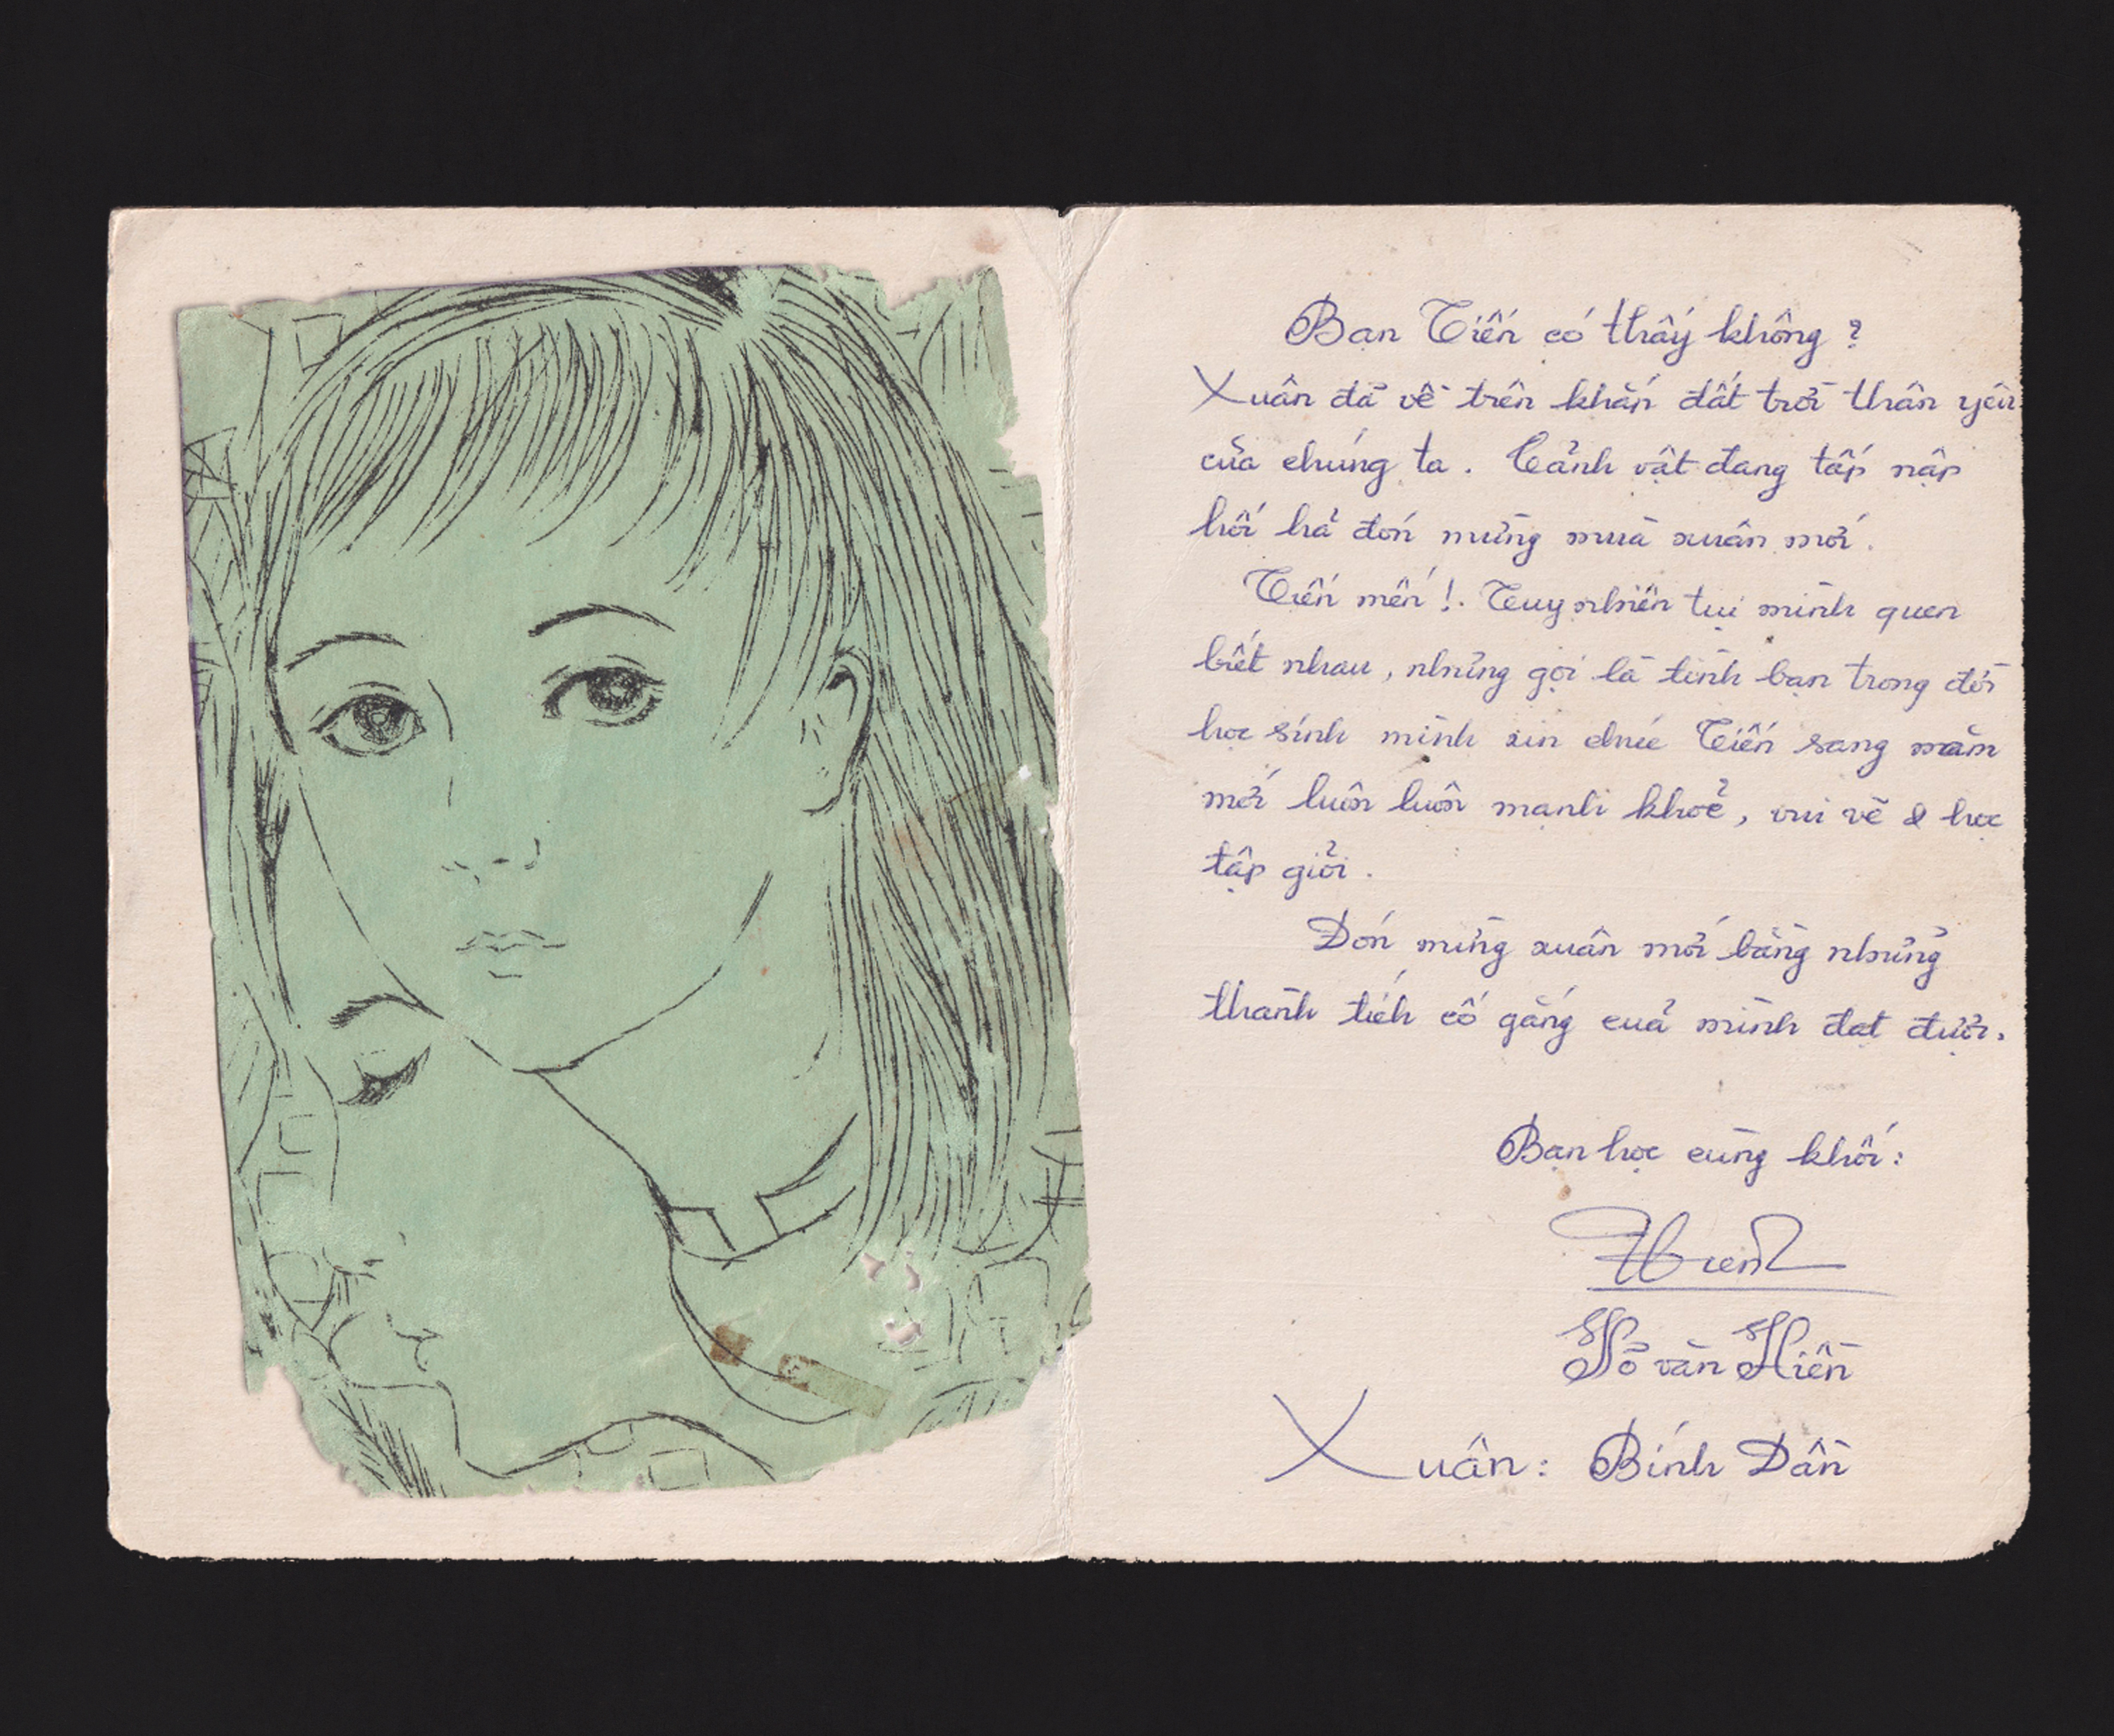 Bạn Tiến có thấy không ?
Xuân đã về trên khắp đất trời thân yêu
của chúng ta . Cảnh vật đang tấp nập
hối hả đón mừng mùa xuân mới .
Tiến mến ! . Tuy nhiên tụi mình quen
biết nhau , nhưng gọi là tình bạn trong đời
học sinh mình xin chúc Tiến sang năm
mới luôn luôn mạnh khoẻ , vui vẽ & học
tập giỏi .
Đón mừng xuân mới bằng những
thành tích cố gắng cuả mình đạt được .
Bạn học cùng khối :
Hiền
Hồ văn Hiền
Xuân : Bính Dần